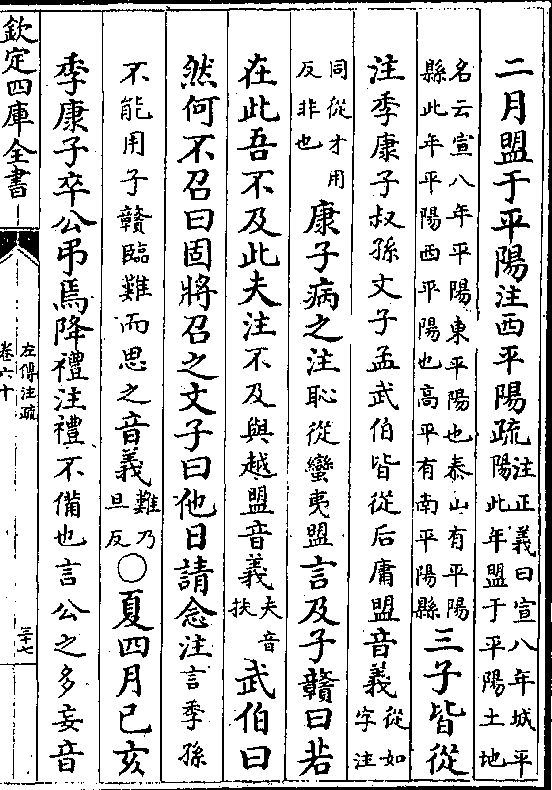 二月盟于平陽注西平陽疏注正義曰宣八年城平
陽此年盟于平陽土地
名云宣八年平陽東平陽也泰山有平陽
縣此年平陽西平陽也高平有南平陽縣三子皆從
注季康子叔孫文子孟武伯皆從后庸盟音義從如
字注
同從才用
反非也康子病之注恥從蠻夷盟言及子贛曰若
在此吾不及此夫注不及與越盟音義夫音
扶武伯曰
然何不召曰固將召之文子曰他日請念注言季孫
不能用子贛臨難而思之音義難乃
旦反〇夏四月己亥
季康子卒公弔焉降禮注禮不備也言公之多妄音
欽定四庫全書
左傳注疏
卷六十
三十七